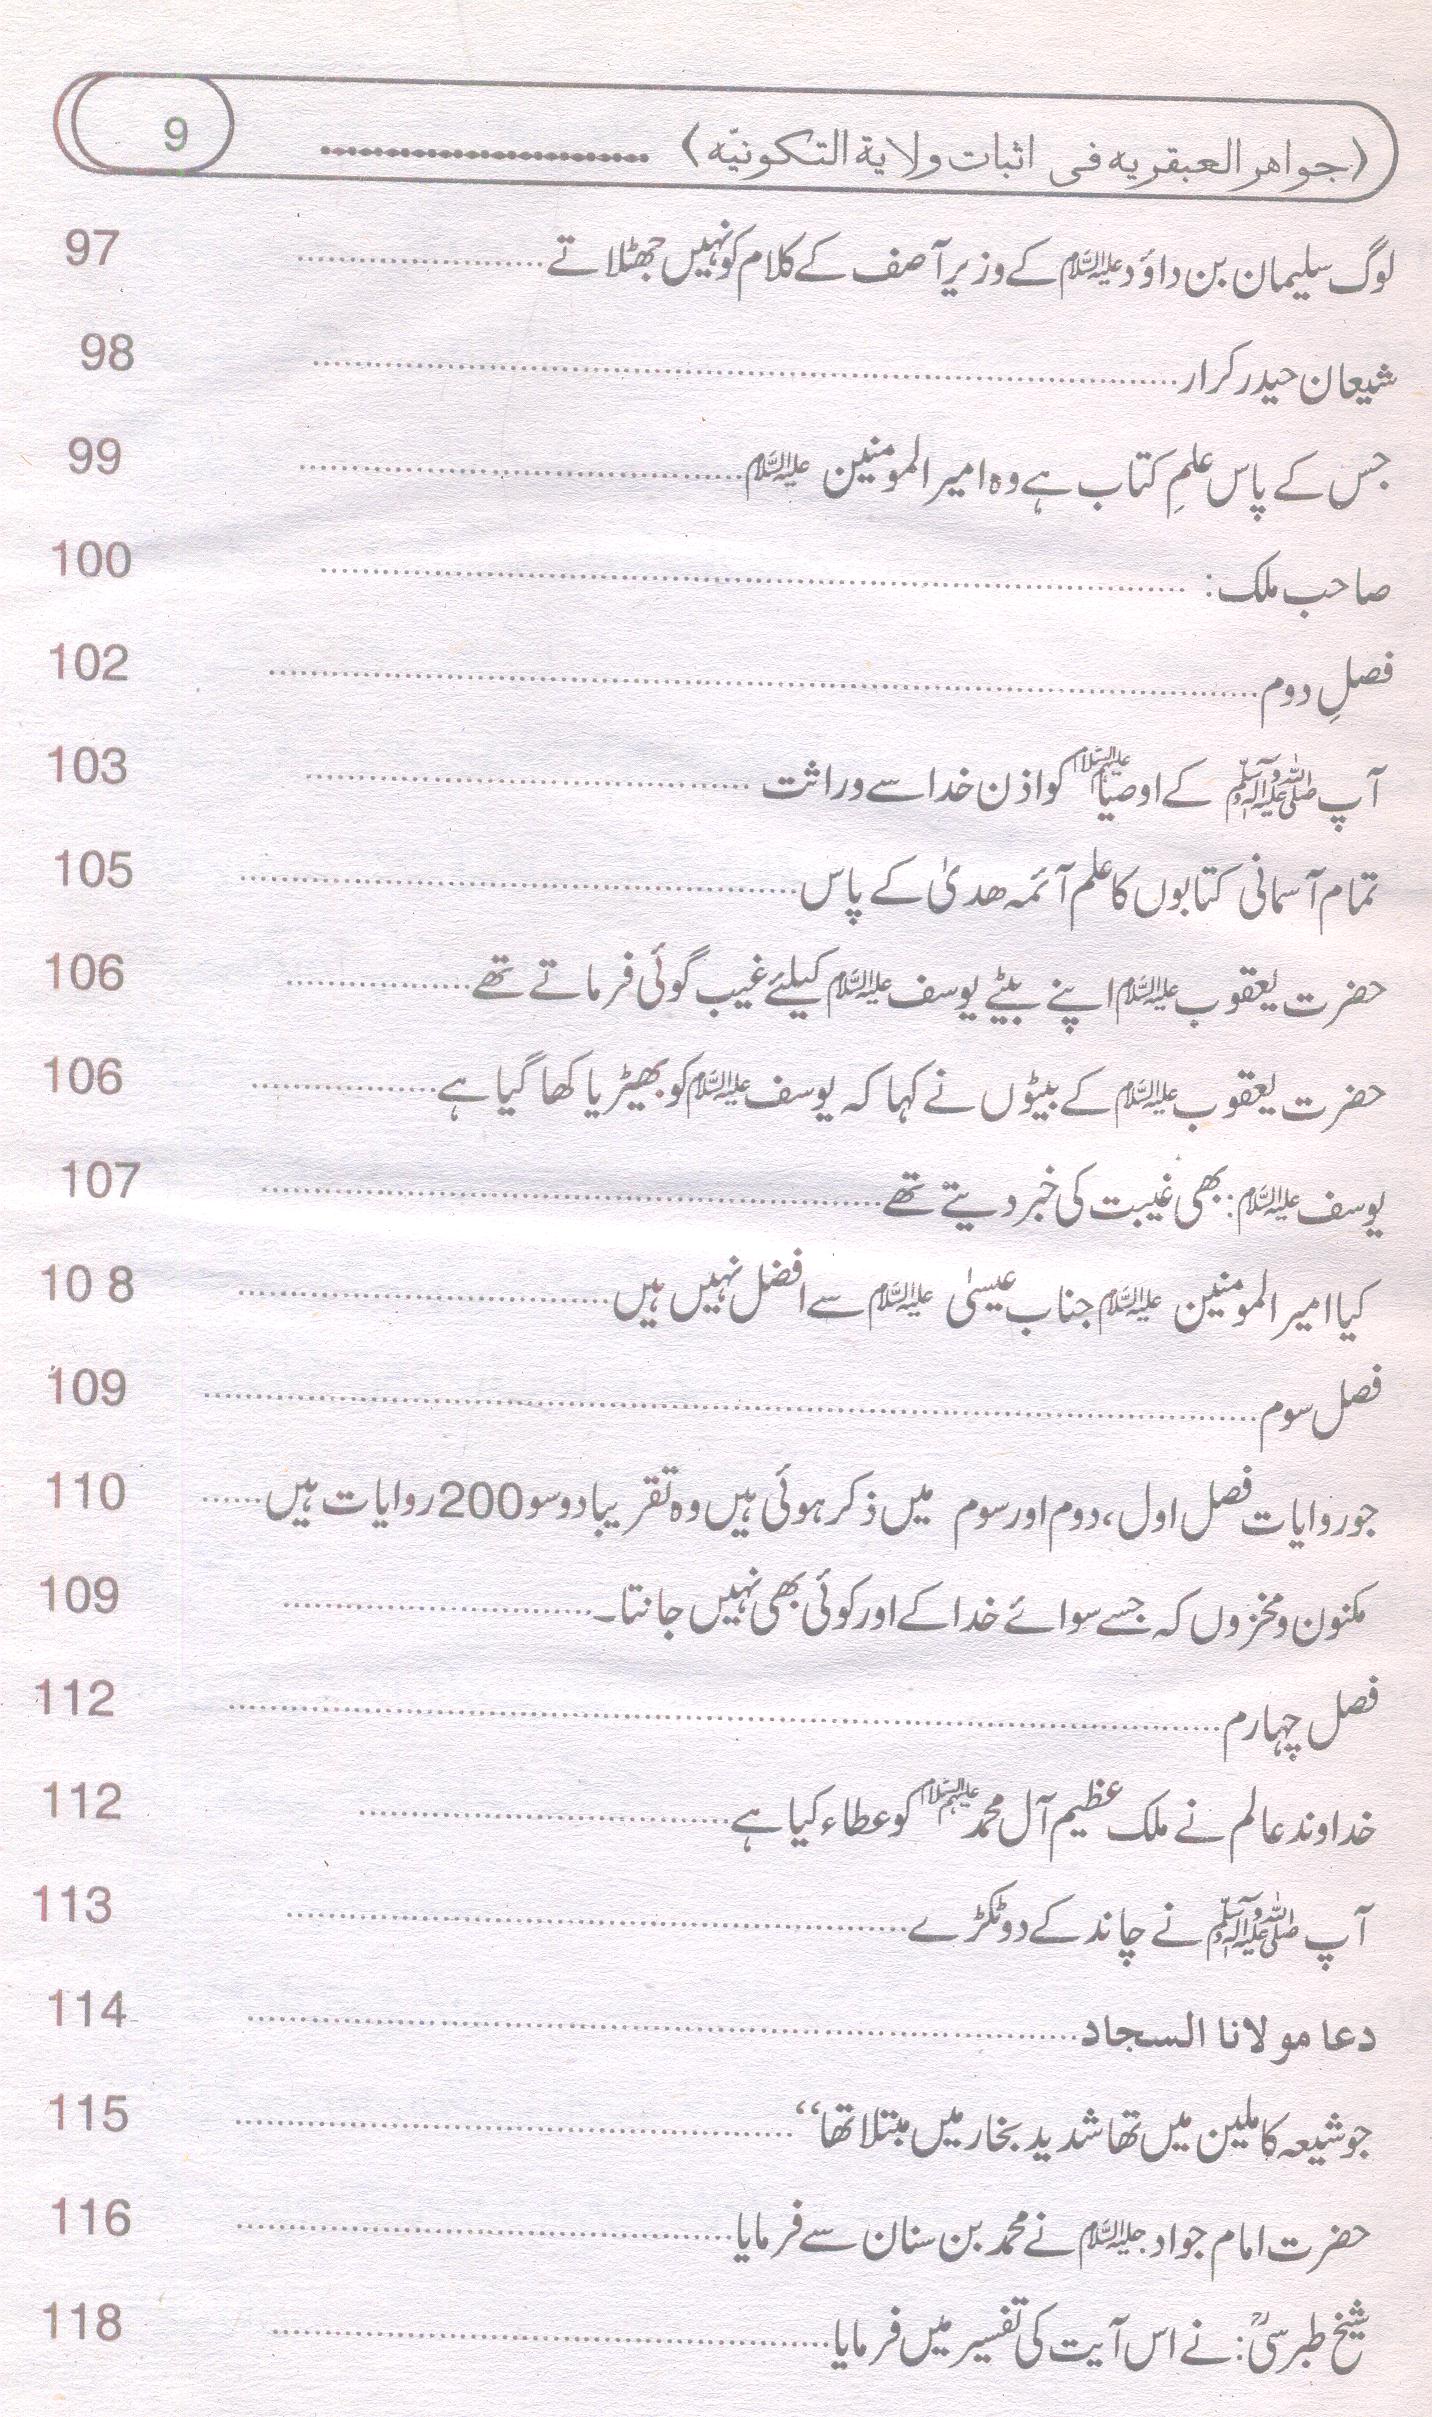 ﴿جواهر العبقریه فی اثبات ولایة التکونیّه﴾ ........................ 9
لوگ سلیمان بن داؤد علیہ السلام کے وزیر آصف کے کلام کو نہیں جھٹلاتے ........................ 97
شیعان حیدر کرار ........................ 98
جس کے پاس علمِ کتاب ہے وہ امیر المومنین علیہ السلام ........................ 99
صاحب ملک: ........................ 100
فصلِ دوم ........................ 102
آپ صلی اللہ علیہ وآلہ وسلم کے اوصیاء علیہم السلام کو اذن خدا سے وراثت ........................ 103
تمام آسمانی کتابوں کا علم آئمہ ھدیٰ کے پاس ........................ 105
حضرت یعقوب علیہ السلام اپنے بیٹے یوسف علیہ السلام کیلئے غیب گوئی فرماتے تھے ........................ 106
حضرت یعقوب علیہ السلام کے بیٹوں نے کہا کہ یوسف علیہ السلام کو بھیڑیا کھا گیا ہے ........................ 106
یوسف علیہ السلام: بھی غیبت کی خبر دیتے تھے ........................ 107
کیا امیر المومنین علیہ السلام جناب عیسیٰ علیہ السلام سے افضل نہیں ہیں ........................ 10 8
فصل سوم ........................ 109
جو روایات فصل اول، دوم اور سوم میں ذکر ہوئی ہیں وہ تقریبا دو سو 200 روایات ہیں ...... 110
مکنون و مخزوں کہ جسے سوائے خدا کے اور کوئی بھی نہیں جانتا۔ ........................ 109
فصل چہارم ........................ 112
خداوند عالم نے ملک عظیم آل محمد علیہم السلام کو عطاء کیا ہے ........................ 112
آپ صلی اللہ علیہ وآلہ وسلم نے چاند کے دو ٹکڑے ........................ 113
دعا مولانا السجاد ........................ 114
جو شیعہ کاملین میں تھا شدید بخار میں مبتلا تھا“ ........................ 115
حضرت امام جواد علیہ السلام نے محمد بن سنان سے فرمایا ........................ 116
شیخ طبرسیؒ: نے اس آیت کی تفسیر میں فرمایا ........................ 118